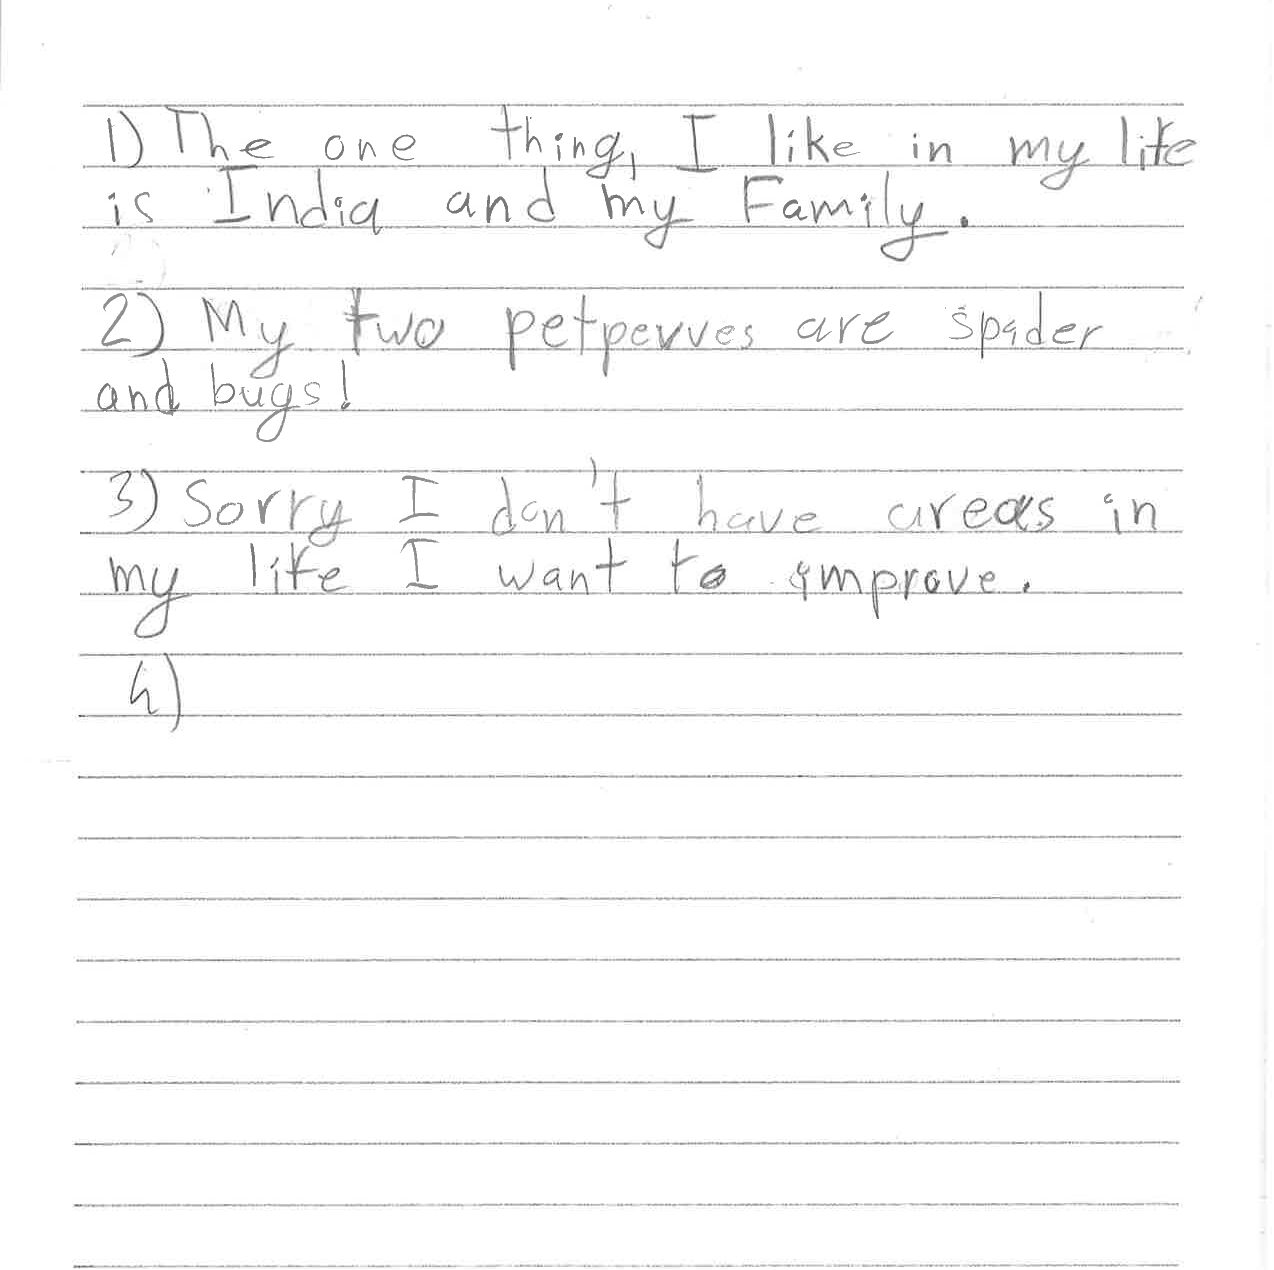 1) The one thing, I like in my life
is India and my Family.
2) My two petpevves are spider
and bugs!
3) Sorry I don't have areas in
my life I want to improve.
4)